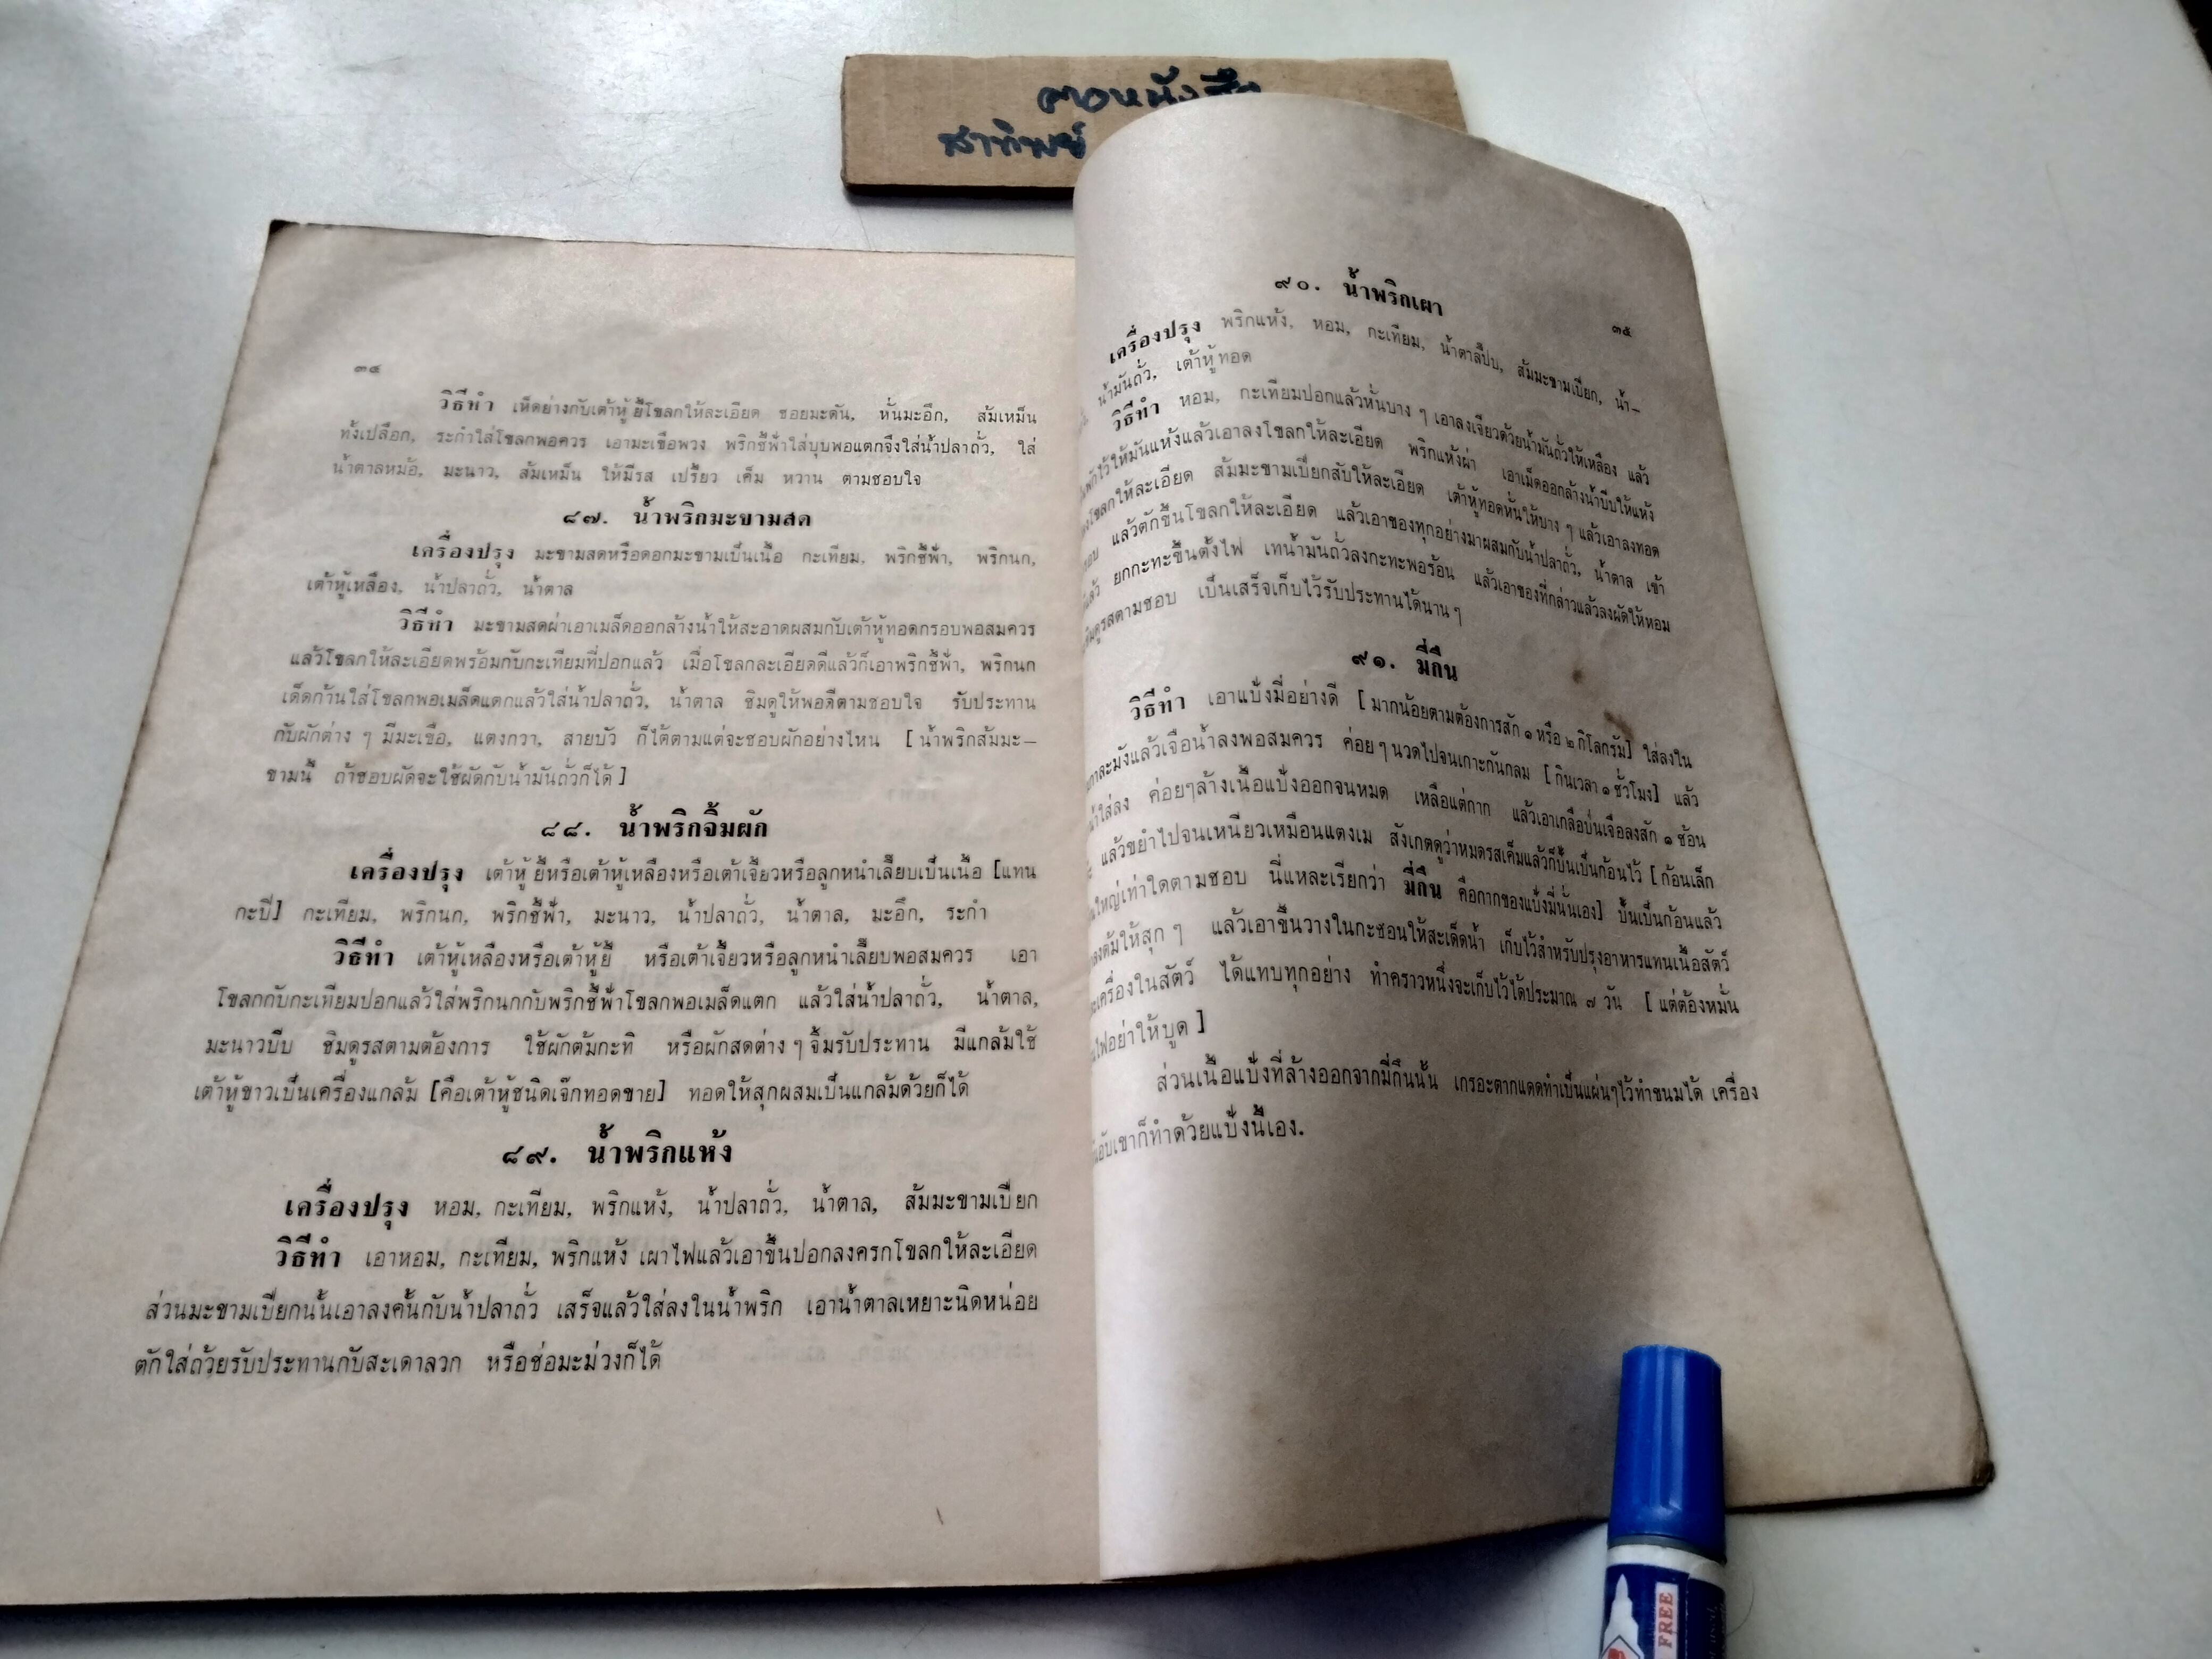 สาทิพย์
๓๔
วิธีทำ เห็ดย่างกับเต้าหู้ยี้โขลกให้ละเอียด ซอยมะดัน, หั่นมะอึก, ส้มเหม็น
ทั้งเปลือก, ระกำใส่โขลกพอควร เอามะเขือพวง พริกชี้ฟ้าใส่บุบพอแตกจึงใส่น้ำปลาถั่ว, ใส่
น้ำตาลหม้อ, มะนาว, ส้มเหม็น ให้มีรส เปรี้ยว เค็ม หวาน ตามชอบใจ
๘๗. น้ำพริกมะขามสด
เครื่องปรุง มะขามสดหรือดอกมะขามเป็นเนื้อ กะเทียม, พริกชี้ฟ้า, พริกนก,
เต้าหู้เหลือง, น้ำปลาถั่ว, น้ำตาล
วิธีทำ มะขามสดผ่าเอาเมล็ดออกล้างน้ำให้สะอาดผสมกับเต้าหู้ทอดกรอบพอสมควร
แล้วโขลกให้ละเอียดพร้อมกับกะเทียมที่ปอกแล้ว เมื่อโขลกละเอียดดีแล้วก็เอาพริกชี้ฟ้า, พริกนก
เด็ดก้านใส่โขลกพอเมล็ดแตกแล้วใส่น้ำปลาถั่ว, น้ำตาล ชิมดูให้พอดีตามชอบใจ รับประทาน
กับผักต่าง ๆ มีมะเขือ, แตงกวา, สายบัว ก็ได้ตามแต่จะชอบผักอย่างไหน [ น้ำพริกส้มมะ–
ขามนี้ ถ้าชอบผัดจะใช้ผัดกับน้ำมันถั่วก็ได้ ]
๘๘. น้ำพริกจิ้มผัก
เครื่องปรุง เต้าหู้ยี้หรือเต้าหู้เหลืองหรือเต้าเจี้ยวหรือลูกหนำเลี้ยบเป็นเนื้อ [แทน
กะปิ] กะเทียม, พริกนก, พริกชี้ฟ้า, มะนาว, น้ำปลาถั่ว, น้ำตาล, มะอึก, ระกำ
วิธีทำ เต้าหู้เหลืองหรือเต้าหู้ยี้ หรือเต้าเจี้ยวหรือลูกหนำเลี้ยบพอสมควร เอา
โขลกกับกะเทียมปอกแล้วใส่พริกนกกับพริกชี้ฟ้าโขลกพอเมล็ดแตก แล้วใส่น้ำปลาถั่ว, น้ำตาล,
มะนาวบีบ ชิมดูรสตามต้องการ ใช้ผักต้มกะทิ หรือผักสดต่าง ๆ จิ้มรับประทาน มีแกล้มใช้
เต้าหู้ขาวเป็นเครื่องแกล้ม [คือเต้าหู้ชนิดเจ๊กทอดขาย] ทอดให้สุกผสมเป็นแกล้มด้วยก็ได้
๘๙. น้ำพริกแห้ง
เครื่องปรุง หอม, กะเทียม, พริกแห้ง, น้ำปลาถั่ว, น้ำตาล, ส้มมะขามเปียก
วิธีทำ เอาหอม, กะเทียม, พริกแห้ง เผาไฟแล้วเอาขึ้นปอกลงครกโขลกให้ละเอียด
ส่วนมะขามเปียกนั้นเอาลงคั้นกับน้ำปลาถั่ว เสร็จแล้วใส่ลงในน้ำพริก เอาน้ำตาลเหยาะนิดหน่อย
ตักใส่ถ้วยรับประทานกับสะเดาลวก หรือช่อมะม่วงก็ได้
๓๕
๙๐. น้ำพริกเผา
เครื่องปรุง พริกแห้ง, หอม, กะเทียม, น้ำตาลปี๊บ, ส้มมะขามเปียก, น้ำ–
น้ำมันถั่ว, เต้าหู้ทอด
วิธีทำ หอม, กะเทียมปอกแล้วหั่นบาง ๆ เอาลงเจียวด้วยน้ำมันถั่วให้เหลือง แล้ว
พักไว้ให้มันแห้งแล้วเอาลงโขลกให้ละเอียด พริกแห้งผ่า เอาเม็ดออกล้างน้ำบีบให้แห้ง
โขลกให้ละเอียด ส้มมะขามเปียกสับให้ละเอียด เต้าหู้ทอดหั่นให้บาง ๆ แล้วเอาลงทอด
แล้วตักขึ้นโขลกให้ละเอียด แล้วเอาของทุกอย่างมาผสมกับน้ำปลาถั่ว, น้ำตาล เข้า
แล้ว ยกกะทะขึ้นตั้งไฟ เทน้ำมันถั่วลงกะทะพอร้อน แล้วเอาของที่กล่าวแล้วลงผัดให้หอม
ดูรสตามชอบ เป็นเสร็จเก็บไว้รับประทานได้นาน ๆ
๙๑. มี่กึน
วิธีทำ เอาแป้งมี่อย่างดี [ มากน้อยตามต้องการสัก ๑ หรือ ๒ กิโลกรัม] ใส่ลงใน
กาละมังแล้วเจือน้ำลงพอสมควร ค่อย ๆ นวดไปจนเกาะกันกลม [กินเวลา ๑ ชั่วโมง] แล้ว
ใส่ลง ค่อยๆล้างเนื้อแป้งออกจนหมด เหลือแต่กาก แล้วเอาเกลือป่นเจือลงสัก ๑ ช้อน
แล้วขยำไปจนเหนียวเหมือนแตงเม สังเกตดูว่าหมดรสเค็มแล้วก็ปั้นเป็นก้อนไว้ [ ก้อนเล็ก
ใหญ่เท่าใดตามชอบ นี่แหละเรียกว่า มี่กึน คือกากของแป้งมี่นั่นเอง] ปั้นเป็นก้อนแล้ว
ลงต้มให้สุก ๆ แล้วเอาขึ้นวางในกะชอนให้สะเด็ดน้ำ เก็บไว้สำหรับปรุงอาหารแทนเนื้อสัตว์
เครื่องในสัตว์ ได้แทบทุกอย่าง ทำคราวหนึ่งจะเก็บไว้ได้ประมาณ ๗ วัน [ แต่ต้องหมั่น
ไฟอย่าให้บูด ]
ส่วนเนื้อแป้งที่ล้างออกจากมี่กึนนั้น เกรอะตากแดดทำเป็นแผ่นๆไว้ทำขนมได้ เครื่อง
เขาก็ทำด้วยแป้งนี้เอง.
FREE